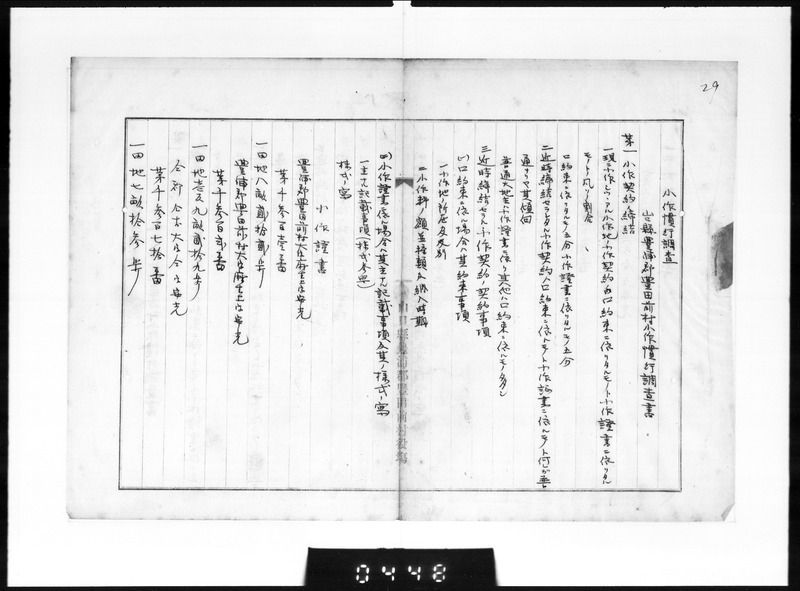 29
小作慣行調査
山口縣豊浦郡豊田前村小作慣行調査書
第一 小作契約ノ締結
一現ニ小作シツツアル小作地ノ小作契約ハ口約束ニ依リタルモノト小作證書ニ依リタル
モノトノ凡ソ割合
口約束ニ依リタルモノ五分 小作證書ニ依リタルモノ五分
二近時締結セラレタル小作契約ハ口約束ニ依ルモノト小作證書ニ依ルモノト何レガ普
通ナリヤ其傾向
普通大地主ハ小作證書ニ依リ其他ハ口約束ニ依ルモノ多シ
三近時締結セラルル小作契約ノ契約事項
(一)口約束ニ依ル場合ハ其約束事項
一小作地ノ所在及反別
二小作料ノ額並種類及納入時期
(二)小作證書ニ依ル場合ハ其主ナル記載事項及其ノ様式ノ寫
一主ナル記載事項(様式参照)
様式ノ寫
小作證書
豊浦郡豊田前村大字
第千参百壱番
一田地八畝貳拾貳歩
豊浦郡豊田前村大字
第千参百貳番
一田地壱反九畝貳拾九歩
仝郡仝村大字仝字
第千参百七拾番
一田地七畝拾参歩
山口縣豊浦郡豊田前村役場
0448